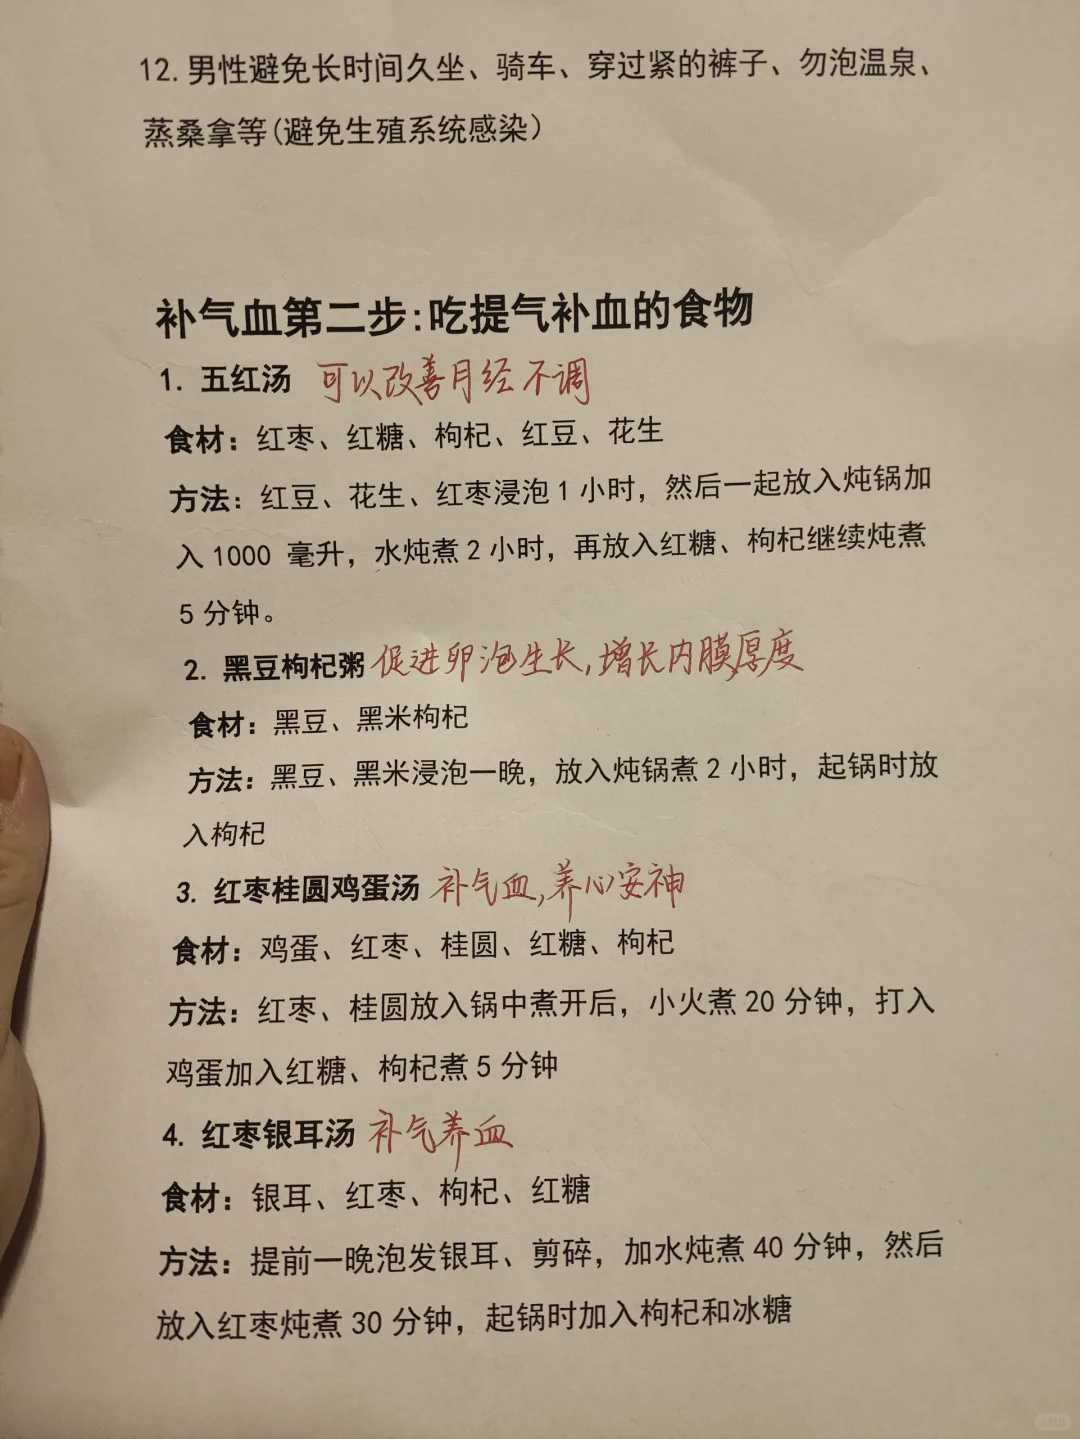 12.男性避免长时间久坐、骑车、穿过紧的裤子、勿泡温泉、
蒸桑拿等(避免生殖系统感染)
补气血第二步:吃提气补血的食物
1. 五红汤 可以改善月经不调
食材：红枣、红糖、枸杞、红豆、花生
方法：红豆、花生、红枣浸泡1小时，然后一起放入炖锅加
入1000 毫升，水炖煮2小时，再放入红糖、枸杞继续炖煮
5分钟。
2. 黑豆枸杞粥 促进卵泡生长,增长内膜厚度
食材：黑豆、黑米枸杞
方法：黑豆、黑米浸泡一晚，放入炖锅煮2小时，起锅时放
入枸杞
3. 红枣桂圆鸡蛋汤 补气血,养心安神
食材：鸡蛋、红枣、桂圆、红糖、枸杞
方法：红枣、桂圆放入锅中煮开后，小火煮20分钟，打入
鸡蛋加入红糖、枸杞煮5分钟
4. 红枣银耳汤 补气养血
食材：银耳、红枣、枸杞、红糖
方法：提前一晚泡发银耳、剪碎，加水炖煮40分钟，然后
放入红枣炖煮30分钟，起锅时加入枸杞和冰糖